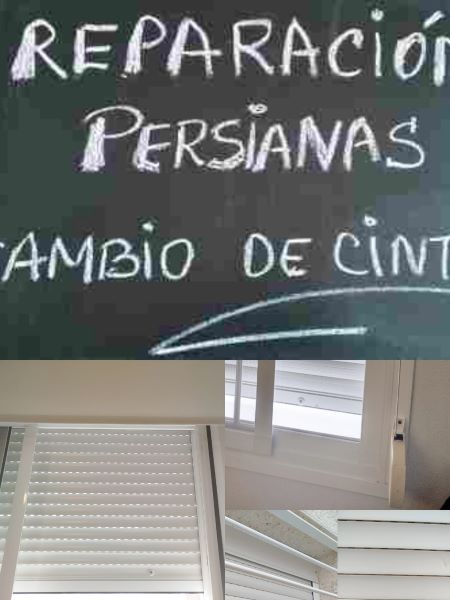 REPARACIÓN
PERSIANAS
CAMBIO DE CINT